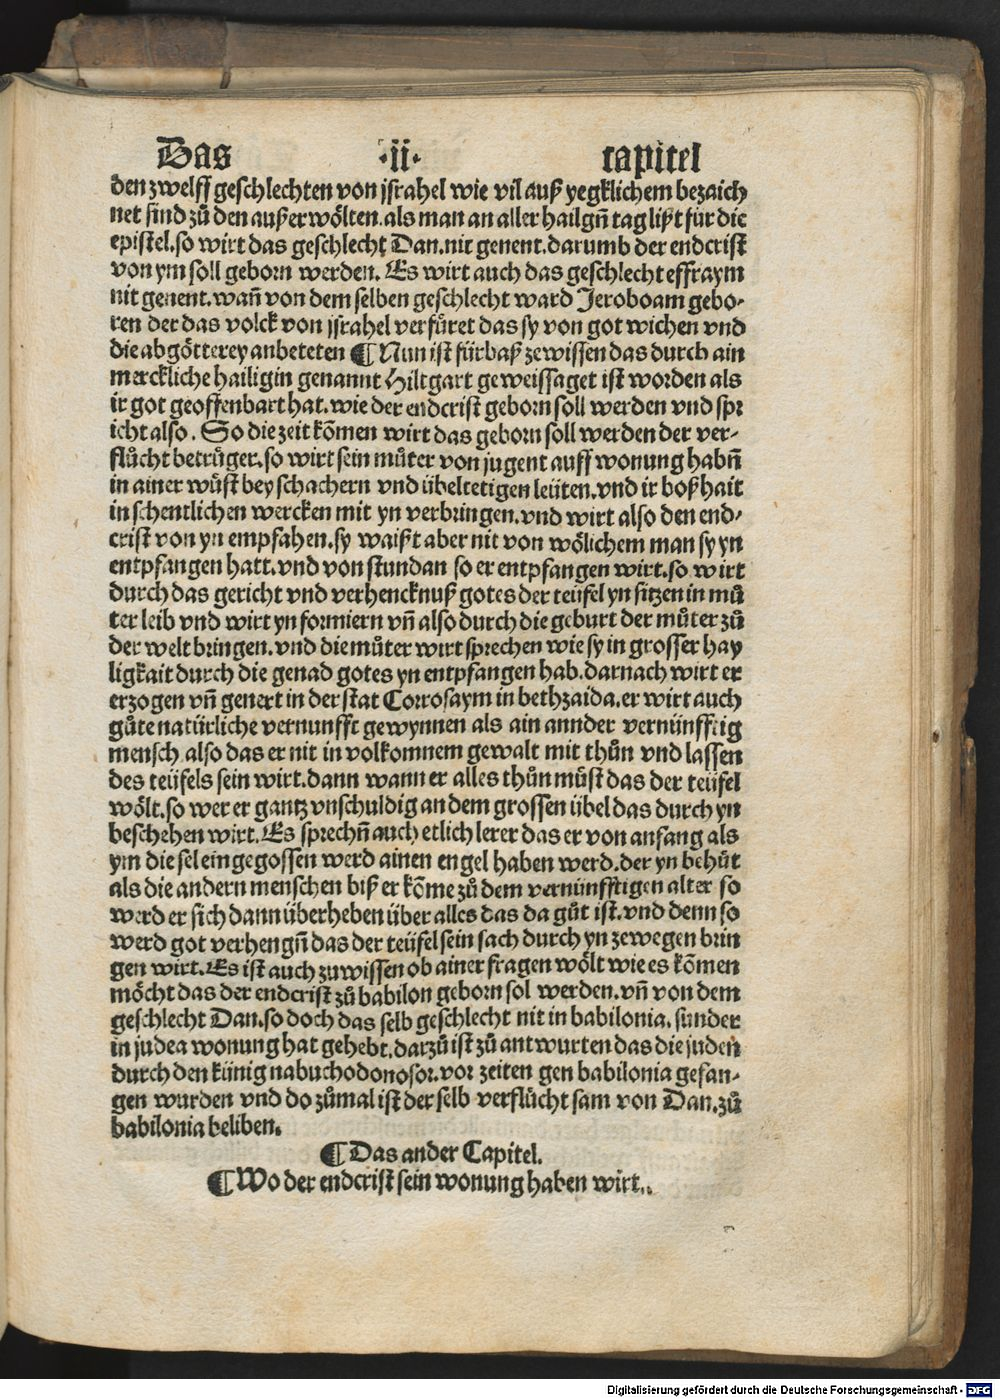 Das ·ii· capitel
den zwelff geschlechten von jsrahel wie vil auß yegklichem bezaich
net sind zů den außerwölten. als man an aller hailgñ tag lißt für die
epistel. so wirt das geschlecht Dan. nit genent. darumb der endcrist
von ym soll geborn werden. Es wirt auch das geschlecht effraym
nit genent. wañ von dem selben geschlecht ward Jeroboam gebo⸗
ren der das volck von jsrahel verfůret das sy von got wichen vnd
die abgötterey anbeteten ¶ Nun ist fürbaß zewissen das durch ain
merckliche hailigin genannt Hiltgart geweissaget ist worden als
ir got geoffenbart hat. wie der endcrist geborn soll werden vnd spr
icht also. So die zeit kõmen wirt das geborn soll werden der ver⸗
flůcht betrüger. so wirt sein můter von jugent auff wonung habñ
in ainer wůst bey schachern vnd übeltetigen leüten. vnd ir boßhait
in schentlichen wercken mit yn verbringen. vnd wirt also den end⸗
crist von yn empfahen. sy waißt aber nit von wölichem man sy yn
entpfangen hatt. vnd von stundan so er entpfangen wirt. so wirt
durch das gericht vnd verhencknuß gotes der teüfel yn sitzen in mů
ter leib vnd wirt yn formiern vñ also durch die geburt der můter zů
der welt bringen. vnd die můter wirt sprechen wie sy in grosser hay
ligkait durch die genad gotes yn entpfangen hab. darnach wirt er
erzogen vñ genert in der stat Corrosaym in bethzaida. er wirt auch
gůte natürliche vernunfft gewynnen als ain annder vernünfftig
mensch also das er nit in volkomnem gewalt mit thůn vnd lassen
des teüfels sein wirt. dann wann er alles thůn můst das der teüfel
wölt. so wer er gantz vnschuldig an dem grossen übel das durch yn
beschehen wirt. Es sprechñ auch etlich lerer das er von anfang als
ym die sel eingegossen werd ainen engel haben werd. der yn behüt
als die andern menschen biß er kõme zů dem vernünfftigen alter so
werd er sich dann überheben über alles das da gůt ist. vnd denn so
werd got verhengñ das der teüfel sein sach durch yn zewegen brin
gen wirt. Es ist auch zuwissen ob ainer fragen wölt wie es kõmen
möcht das der endcrist zů babilon geborn sol werden. vñ von dem
geschlecht Dan. so doch das selb geschlecht nit in babilonia. sunder
in judea wonung hat gehebt. darzů ist zů antwurten das die juden
durch den künig nabuchodonosor. vor zeiten gen babilonia gefan⸗
gen wurden vnd do zůmal ist der selb verflůcht sam von Dan. zů
babilonia beliben.
¶ Das ander Capitel.
¶ Wo der endcrist sein wonung haben wirt..
Digitalisierung gefördert durch die Deutsche Forschungsgemeinschaft - DFG